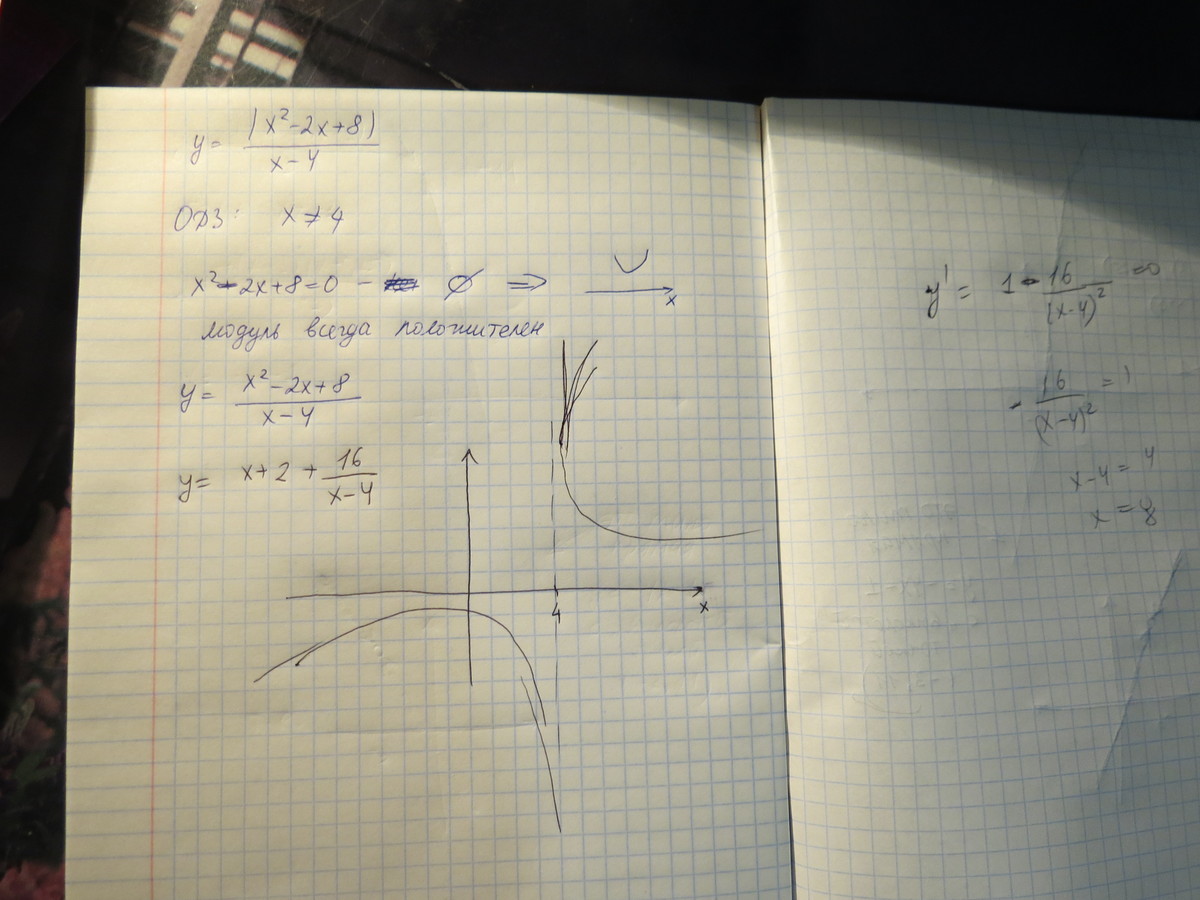 y = |x²-2x+8| / x-4
ОДЗ: x ≠ 4
x²-2x+8=0 - ∅ ⇒ x
модуль всегда положителен
y = x²-2x+8 / x-4
y = x+2 + 16 / x-4
4 x
y' = 1 - 16 / (x-4)² =0
- 16 / (x-4)² = 1
x-4 = 4
x = 8